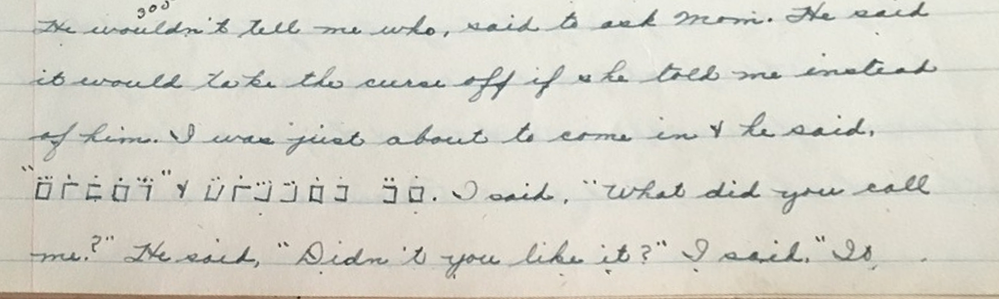 305
He wouldn't tell me who, said to ask Mom. He said
it would take the curse off if she told me instead
of him. I was just about to come in & he said,
& . I said, "What did you call
me?" He said, "Didn't you like it?" I said, "It